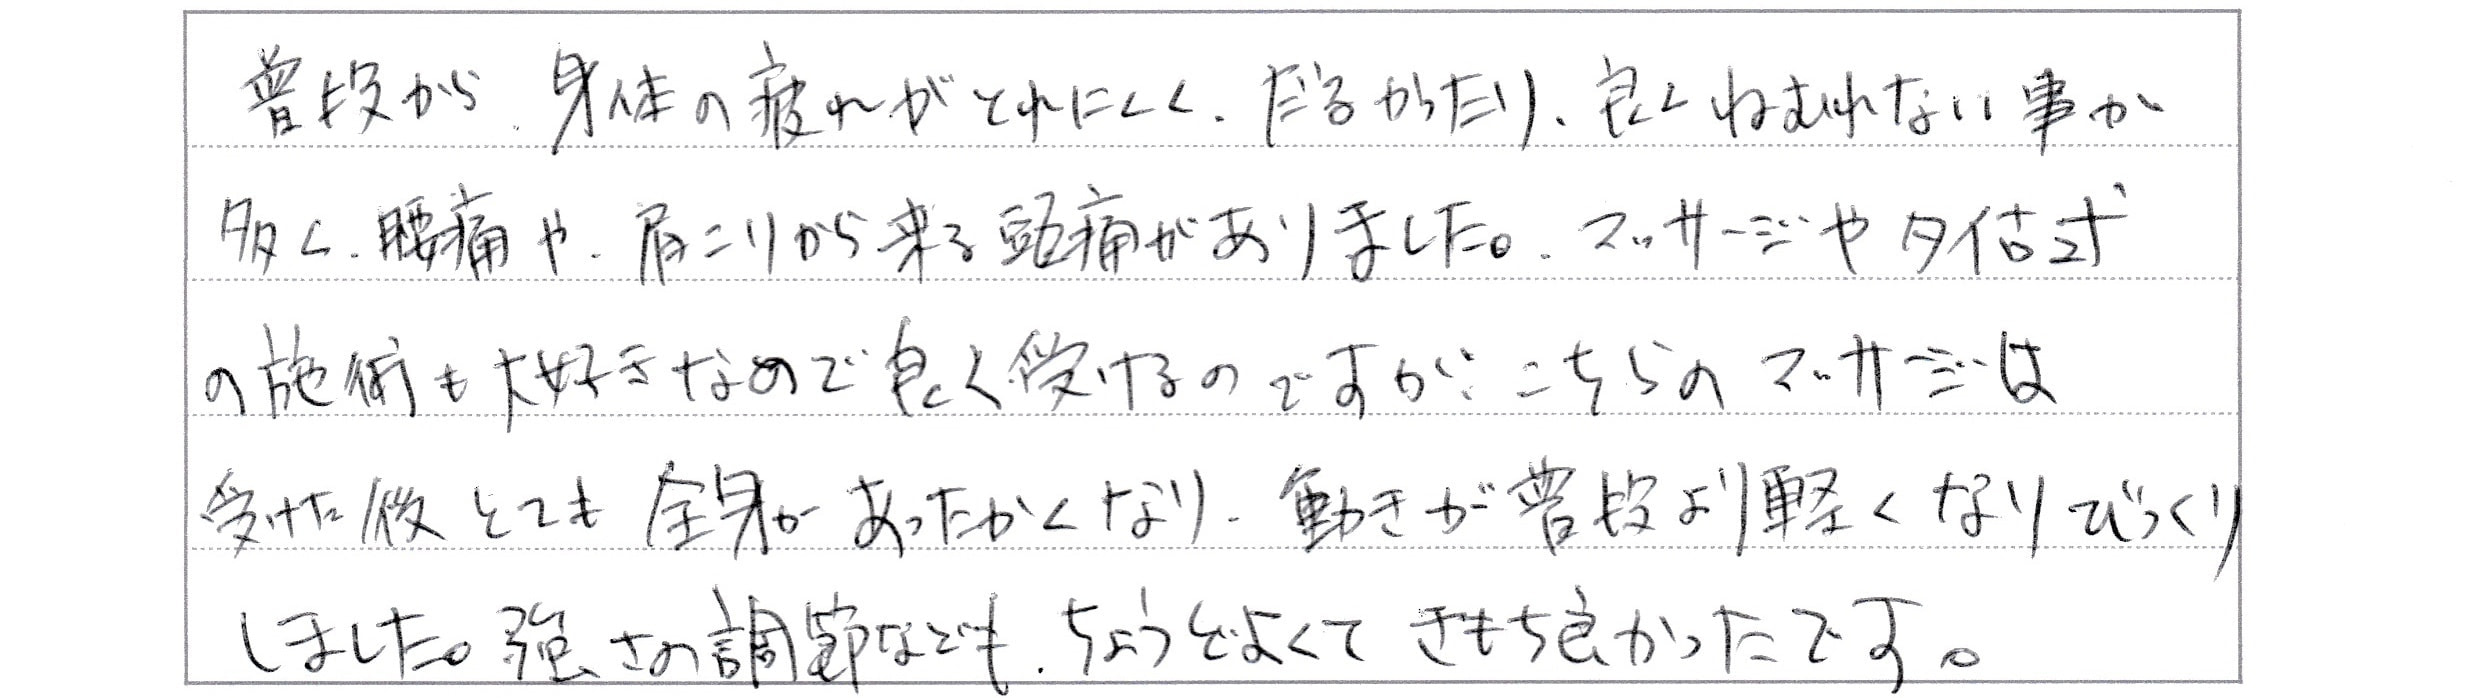 普段から、身体の疲れがとれにくく、だるかったり、良くねむれない事が
多く、腰痛や、肩こりから来る頭痛がありました。マッサージやタイ古式
の施術も大好きなので良く受けるのですが、こちらのマッサージは
受けた後とても全身があったかくなり、動きが普段より軽くなりびっくり
しました。強さの調節なども、ちょうどよくてきもち良かったです。